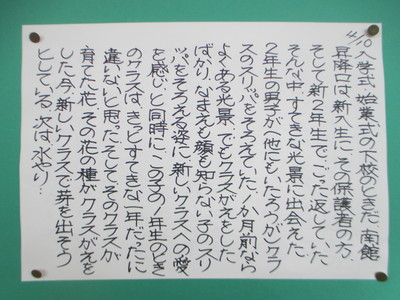 4/10 入学式・始業式の下校のときだ。南館
昇降口は、新入生に、その保護者の方、
そして新2年生で、ごった返していた。
そんな中、すてきな光景に出会えた。
2年生の男子が(他にもいたろうが)クラ
スのスリッパをそろえていた。1か月前なら
よくある光景。でもクラスがえをした
ばかり、なまえも顔を知らない子のスリ
ッパをそろえる姿に、新しいクラスへの愛
を感じ、と同時に、この子の1年生のとき
のクラスは、きっとすてきな1年だったに
違いないと思った。そして、そのクラスが
育てた花、その花の種が、クラスがえを
した今、新しいクラスで芽を出そう
としている。次は、水やり…